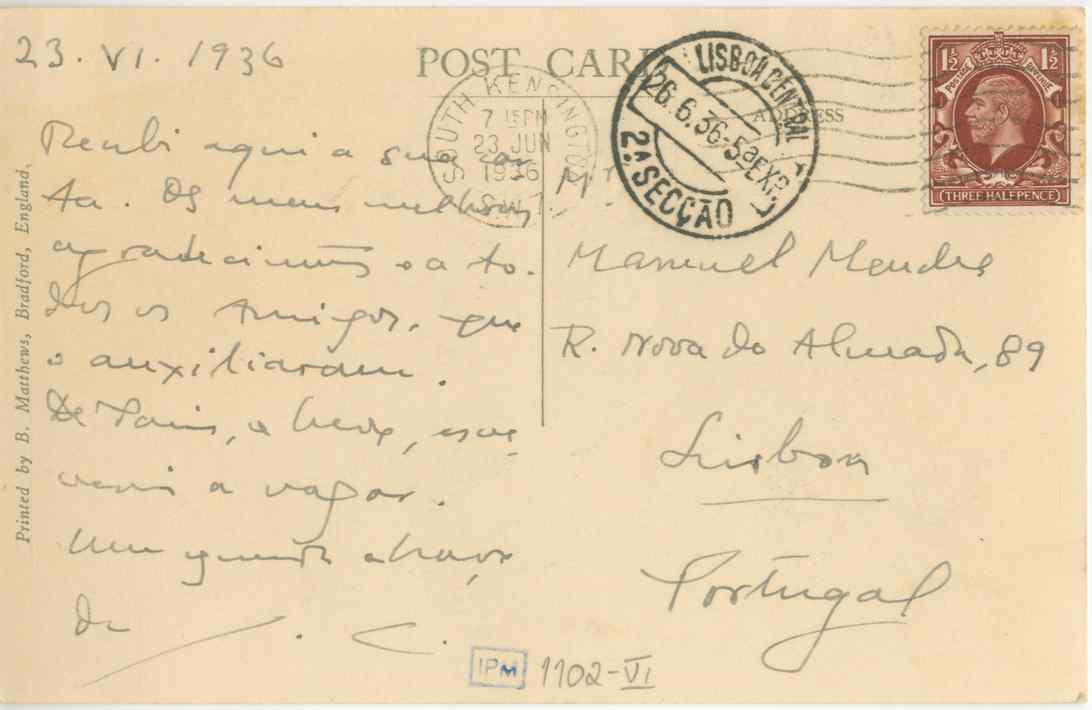 23. VI. 1936
POST CARD
ADDRESS
Recebi aqui a sua car
ta. Os meus melhores
agradecimentos e a to-
dos os Amigos, que
o auxiliaram.
De Paris, em breve, escre
verei a vagar.
Um grande abraço
de
Manuel Mendes
R. Nova do Almada, 89
Lisboa
Portugal
SOUTH KENSINGTON
7 15 PM
23 JUN
1936
S.W.7
LISBOA CENTRAL
26.6.36-5ªEXP.
2ª SECÇÃO
1½ 1½
POSTAGE REVENUE
THREE HALFPENCE
Printed by B. Matthews, Bradford, England.
IPM 1102-VI